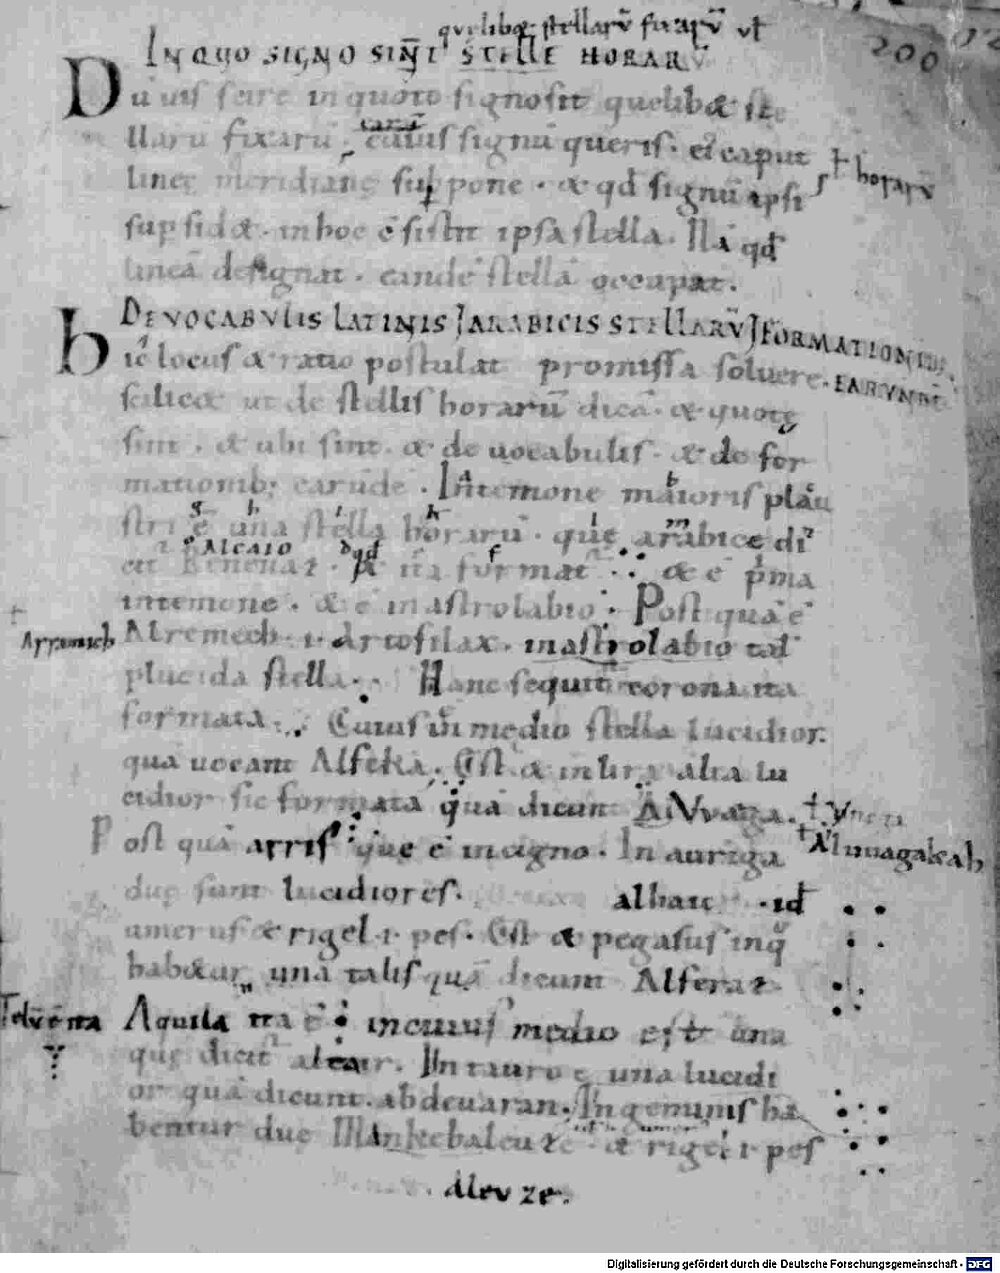 quelibet stellarū fixarū vł
IN QUO SIGNO SINT STELLE HORARŪ
200
Du uis scire in quoto signo sit quelibet ste
llarū fixarū cuius signū queris. et caput
horarū
lineę meridianę suppone. et qđ signū ipsi
sup sidet. in hoc ē sistit ipsa stella. Nā qđ
lineā designat. eandē stellā occupat.
DE VOCABVLIS LATINIS ARABICIS STELLARV̄ FORMATIONIBUS
EARVNDĒ
hic locus et ratio postulat promissa soluere.
scilicet ut de stellis horarū dicā. et quotę
sint. et ubi sint. et de uocabulis. et de for
mationib; earūdē. In temone maioris plau
stri ē una stella horarū. quę arabice di
ALCAIO
cit Benenaz. qđ ita format et ē p̄ma
in temone. et ē in astrolabio. Post quā ē
Arramech
Alremech. i. Artofilax. in astrolabio tał
placida stella. Hanc sequit corona ita
formata. Cuius in medio stella lucidior.
quā uocant Alfeka. Est et in lira alia lu
cidior sic formata quā dicunt
Alnuagakah
Post quā arris quę ē in cigno. In auriga
duę sunt lucidiores. alhaic .id
umerus et rigel .i. pes. Est et pegasus in q
habetur una talis quā dicunt Alferaz
Aquila ita ē in cuius medio est una
quę dicit altair. In tauro ē una lucidi
or quā dicunt. abdeuaran. In geminis ha
bentur due Mankebaleuze et rigel .i. pes
Aleuze.
Digitalisierung gefördert durch die Deutsche Forschungsgemeinschaft - DFG